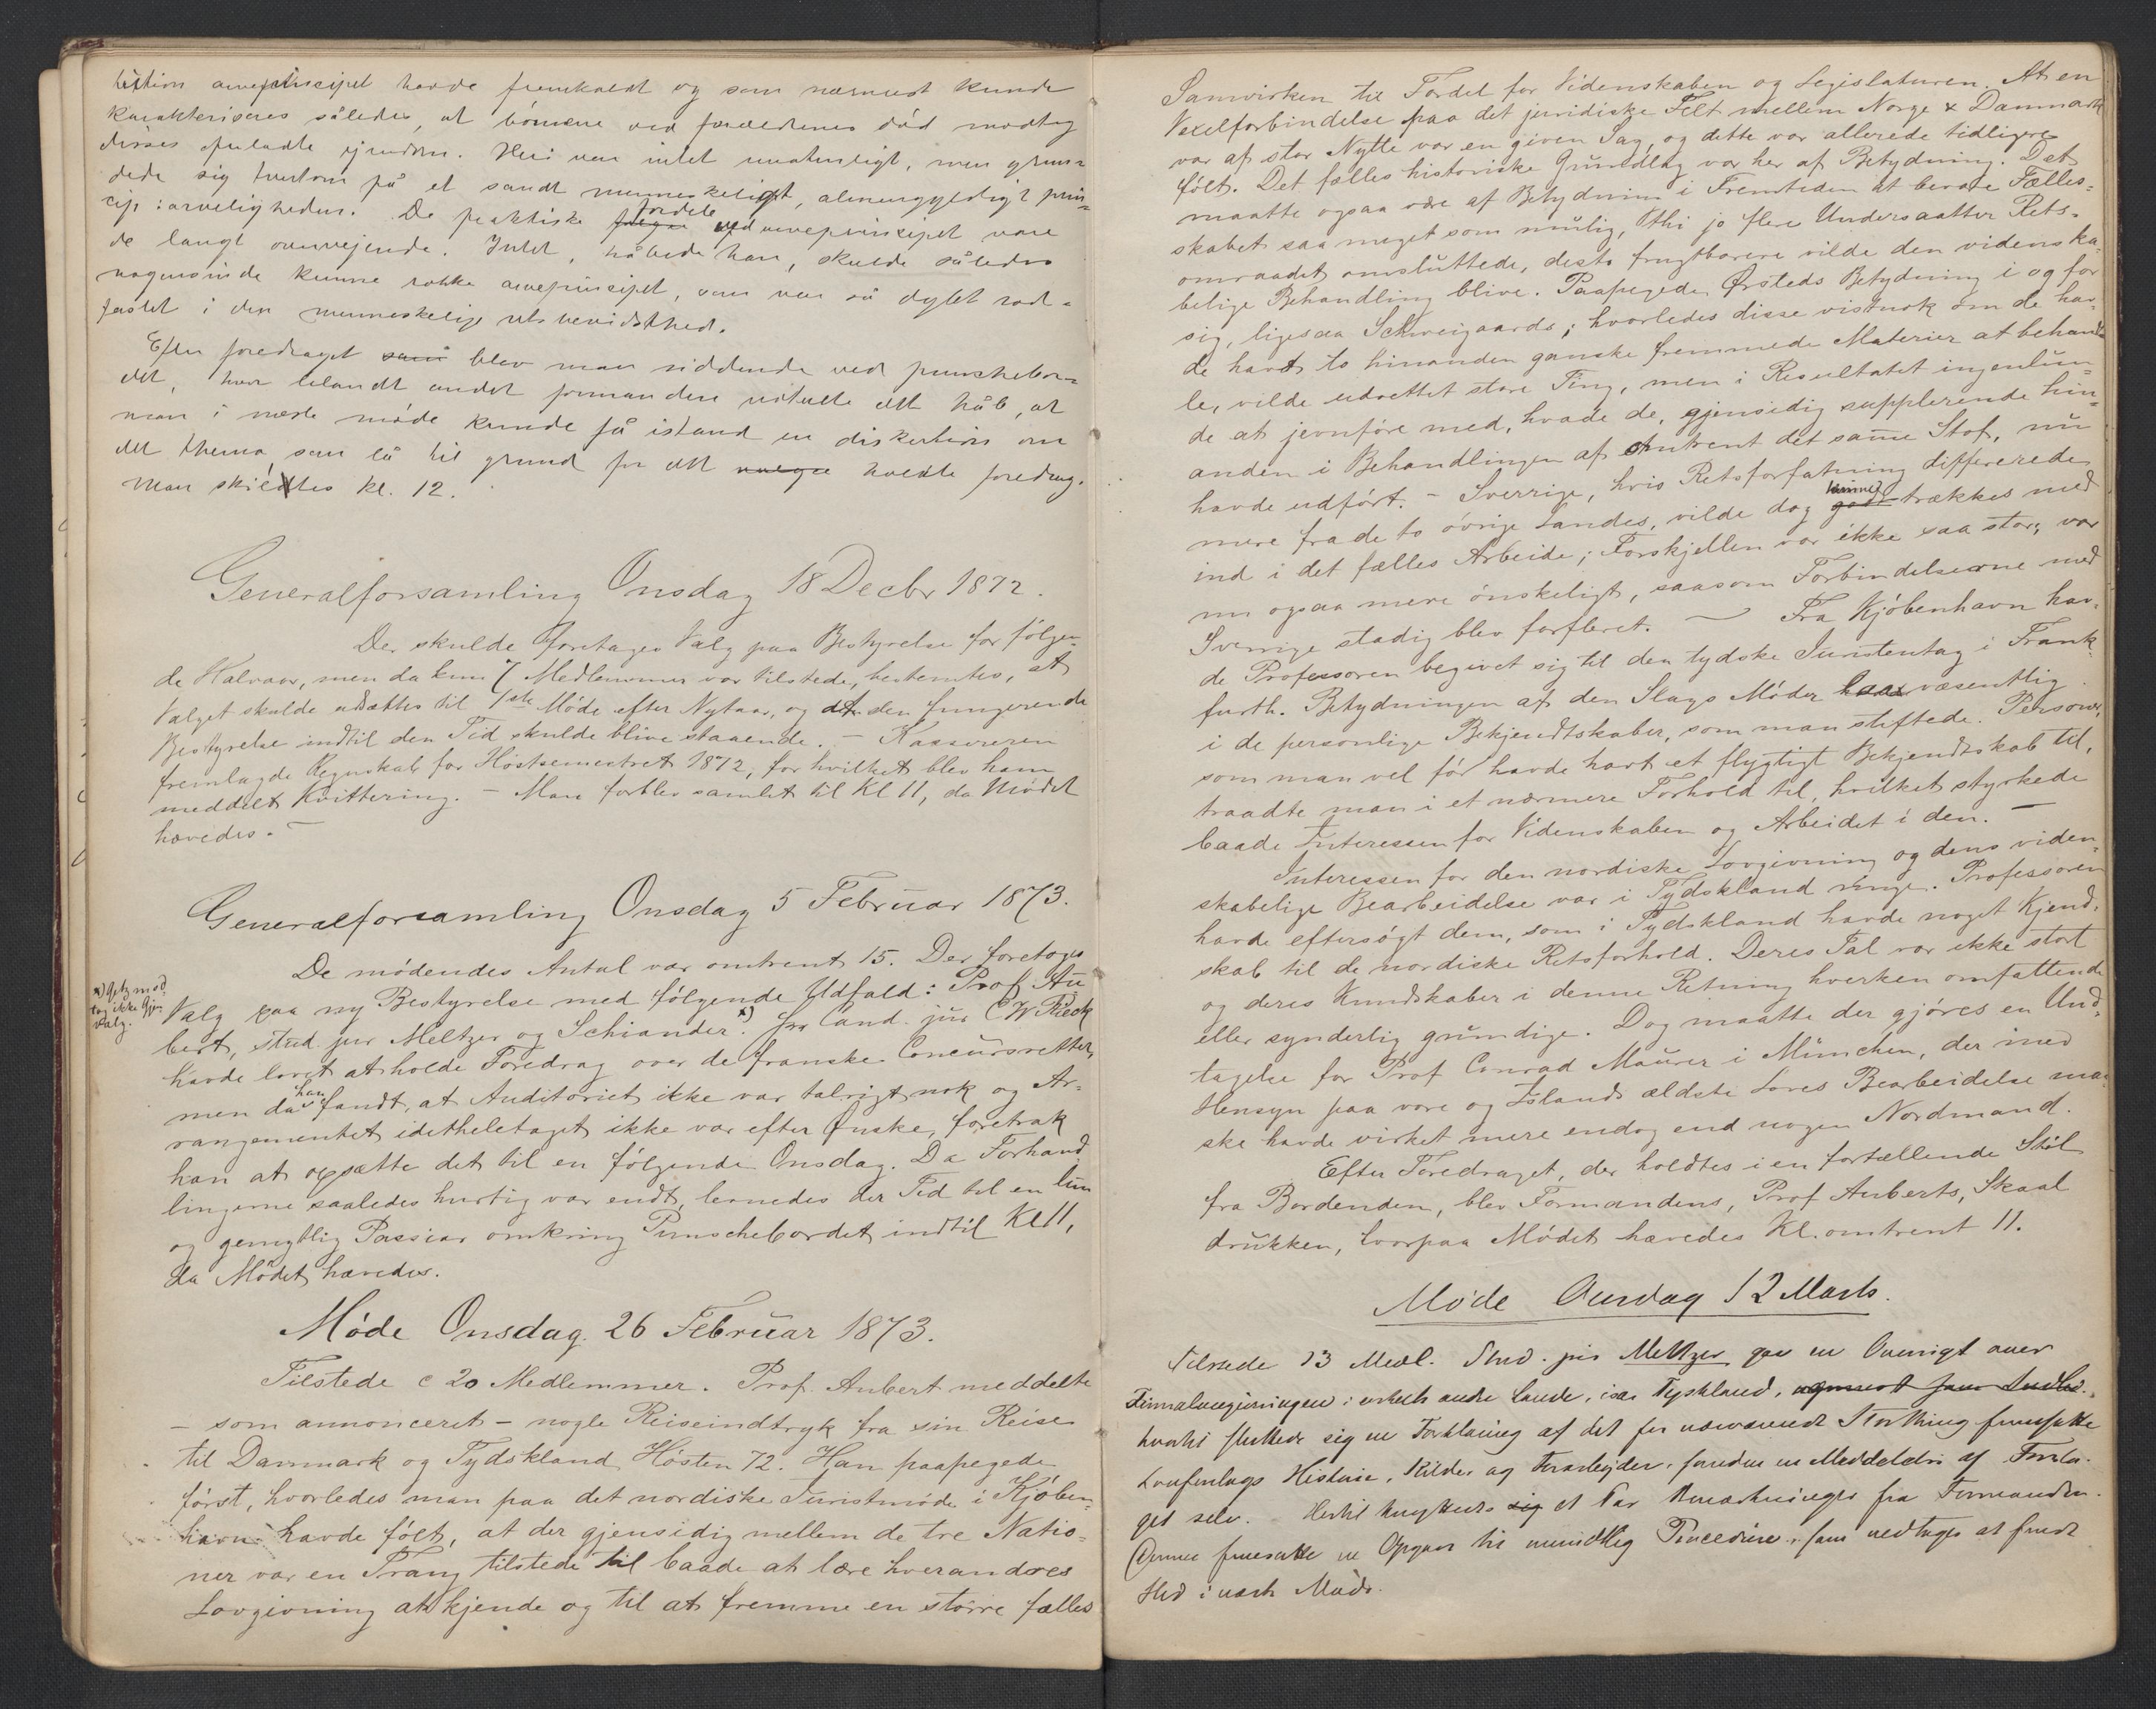 tution arveprincipet havde fremkaldt og som nærmest kunde
karakteriseres således, at börnene ved forældrenes död modtog
disses efterladte ejendom. Heri var intet unaturligt, men grun=
dede sig tvertom på et sandt menneskeligt, almengyldigt prin=
cip: arveligheden. De praktiske fordele ved arveprincipet vare
de langt overvejende. Intet, håbede han, skulde således
nogensinde kunne rokke arveprincipet, som var så dybt rod=
fæstet i den menneskelige retsbevidsthed.
Efter foredraget blev man siddende ved punschebor=
det, hvor blandt andet formanden udtalte det håb, at
man i næste møde kunde få istand en diskution om
det thema, som lå til grund for det holdte foredrag.
Man skiltes kl. 12.
Generalforsamling Onsdag 18 Decbr 1872.
Der skulde foretages Valg paa Bestyrelse for følgen=
de Halvaar, men da kun 7 Medlemmer var tilstede, bestemtes, at
Valget skulde udsættes til 1ste Møde efter Nytaar, og at den fungerende
Bestyrelse indtil den Tid skulde blive staaende. – Kassereren
fremlagde Regnskab for Høstsemestret 1872, for hvilket blev ham
meddelt Kvittering. – Man forblev samlet til Kl 11, da Mødet
hævedes. –
Generalforsamling Onsdag 5 Februar 1873.
De mødendes Antal var omtrent 15. Der foretoges
Valg paa ny Bestyrelse med følgende Udfald: Prof Au
bert, stud. jur Meltzer og Schiander. x) Cand. jur C W
x) Getz mod
tog ikke Gjen
valg.
havde lovet at holde Foredrag over de franske Concursretter,
men da han fandt, at Auditoriet ikke var talrigt nok og Ar=
rangementet idetheletaget ikke var efter Ønske, foretrak
han at opsætte det til en følgende Onsdag. Da Forhand
lingerne saaledes hurtig var endt, levnedes der Tid til en lun
og gemytlig Passiar omkring Punschebordet indtil Kl 11,
da Mødet hævedes.
Møde Onsdag 26 Februar 1873.
Tilstede c 20 Medlemmer. Prof. Aubert meddelte
– som annonceret – nogle Reiseindtryk fra sin Reise
til Danmark og Tydskland Høsten 72. Han paapegede
først, hvorledes man paa det nordiske Juristmøde i Kjøben=
havn havde følt, at der gjensidig mellem de tre Natio=
ner var en Trang tilstede til baade at lære hverandres
Lovgivning at kjende og til at fremme en større fælles
Samvirken til Fordel for Videnskaben og Legislaturen. At en
Vexelforbindelse paa det juridiske Felt mellem Norge & Danmark
var af stor Nytte var en given Sag, og dette var allerede tidligere
følt. Det fælles historiske Grundlag var her af Betydning. Det
maatte ogsaa være af Betydning i Fremtiden at bevare Fælles=
skabet saa meget som mulig, thi jo flere Undersaatter Rets=
omraadet omsluttede, desto frugtbarere vilde den videnska=
belige Behandling blive. Paapegede Ørsteds Betydning i og for
sig, ligesaa Schweigaards; hvorledes disse vistnok om de hav
de havt to hinanden ganske fremmede Materier at behand
le, vilde udrettet store Ting, men i Resultatet ingenlun=
de at jevnføre med, hvade de, gjensidig supplerende hin=
anden i Behandlingen af omtrent det samme Stof, nu
havde udført. – Sverrige, hvis Retsforfatning differerede
mere fra de to øvrige Landes, vilde dog kunne trækkes med
ind i det fælles Arbeide; Forskjellen var ikke saa stor, var
nu ogsaa mere ønskeligt, saasom Forbindelserne med
Sverrige stadig blev forfleret. – Fra Kjøbenhavn hav=
de Professoren begivet sig til den tydske Juristentag i Frank=
furth. Betydningen af den Slags Møder væsentlig
i de personlige Bekjendtskaber, som man stiftede. Personer,
som man vel før havde havt et flygtigt Bekjendtskab til,
traadte man i et nærmere Forhold til, hvilket styrkede
baade Interessen for Videnskaben og Arbeidet i den. –
Interessen for den nordiske Lovgivning og dens viden=
skabelige Bearbeidelse var i Tydskland ringe. Professoren
havde eftersøgt dem, som i Tydskland havde noget Kjend=
skab til de nordiske Retsforhold. Deres Tal var ikke stort
og deres Kundskaber i denne Retning hverken omfattende
eller synderlig grundige. Dog maatte der gjøres en Und=
tagelse for Prof Conrad Maurer i München, der med
Hensyn paa vore og Islands ældste Loves Bearbeidelse maa
ske havde virket mere endog end nogen Nordmand.
Efter Foredraget, der holdtes i en fortællende Stil
fra Bordenden, blev Formandens, Prof Auberts, Skaal
drukken, hvorpaa Mødet hævedes Kl. omtrent 11.
Møde Onsdag 12 Marts.
Tilstede 13 Medl. Stud. jur Meltzer gav en Oversigt over
Firmalovgivningen i enkelte andre Lande, især Tyskland,
hvortil sluttede sig en Forklaring af det for nærværende Storthing fremsatte
Lovforslags Historie, Kilder og Forarbejder, foruden en Meddelelse af Forsla=
get selv. Hertil knyttedes et Par Bemærkninger fra Formanden.
Denne fremsatte en Opgave til mundtlig Procedure, som vedtoges at finde
Sted i næste Møde.